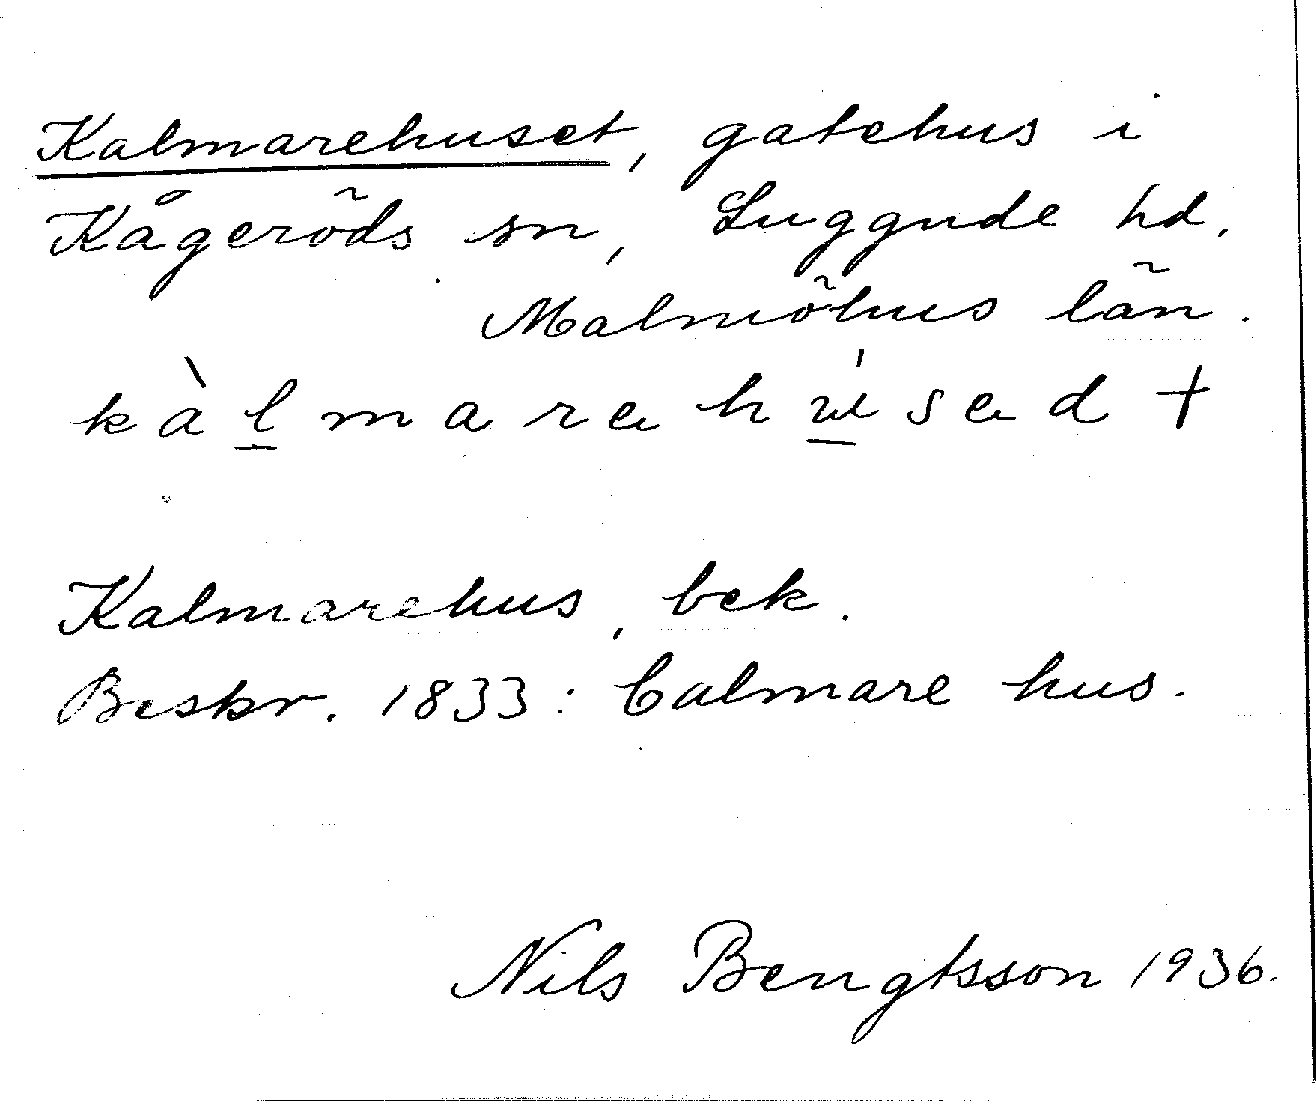 Kalmarehuset, gatehus i
Kågeröds sn, Luggude hd.
Malmöhus län.
kàlmarehúsed +
Kalmarehus, bek.
Beskr. 1833: Calmare hus.
Nils Bengtsson 1936.